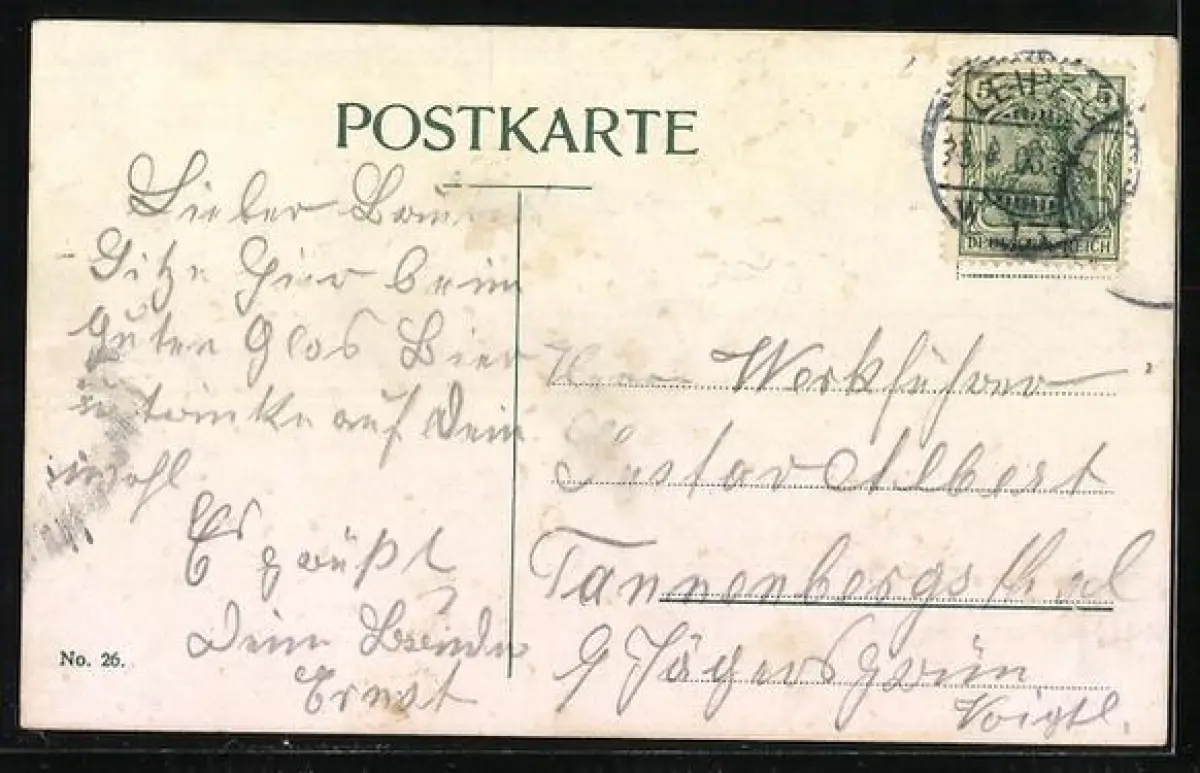 POSTKARTE
Lieber
Sitze hier beim
guten Glas Bier
u. trinke auf Dein
wohl
Es grüßt
Dein Bruder
Ernst
No. 26.
5 5
LEIPZIG
DEUTSCHES REICH
Herrn Werkführer
Gustav Albert
Tannenbergsthal
Jägersgrün
Voigtl.